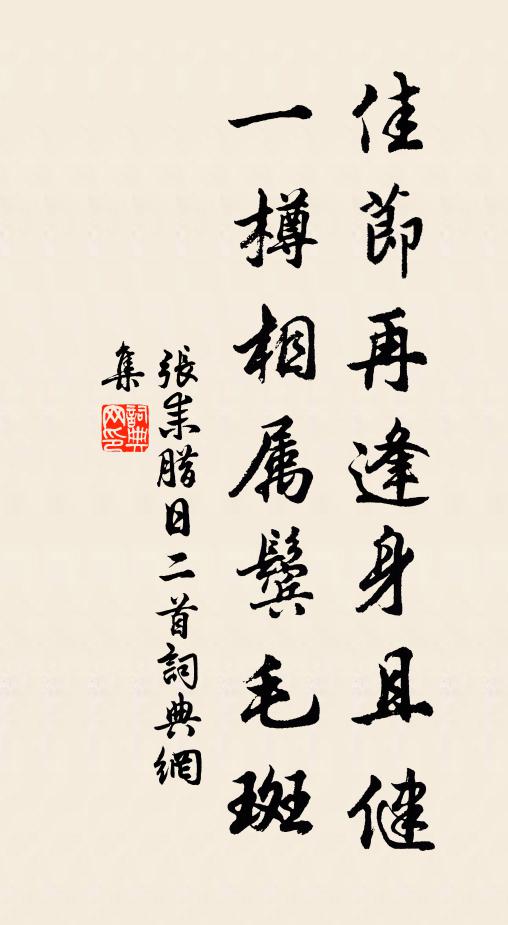 佳節再逢身且健
一樽相属鬢毛斑
張耒腊日二首詞典網
集
詞典网印